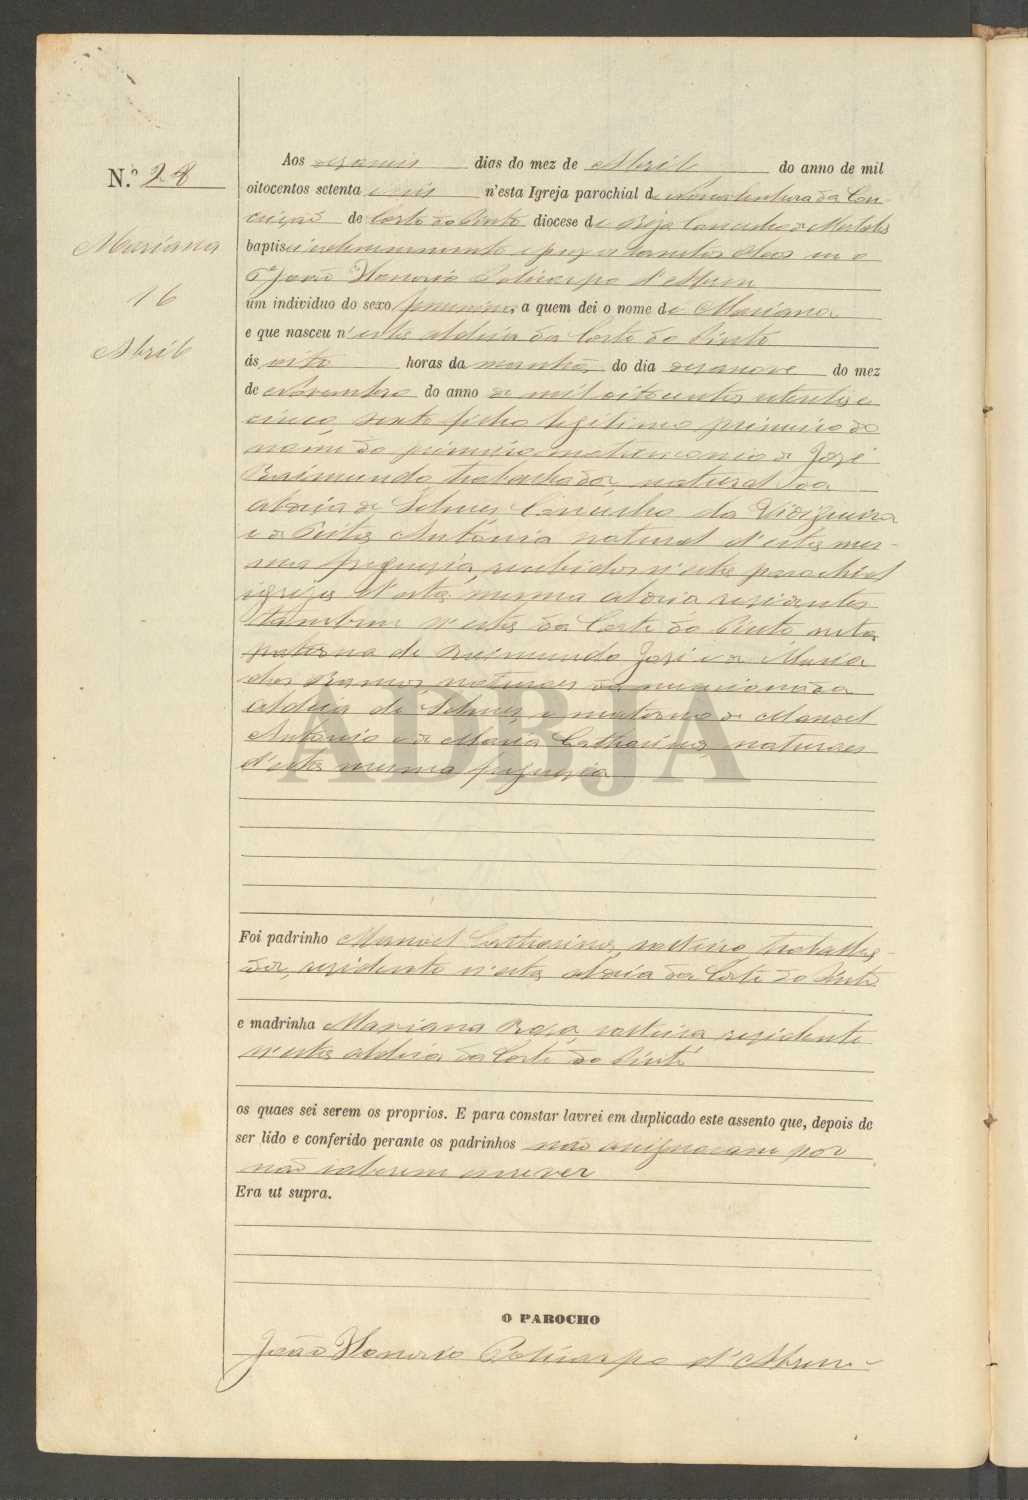 N.º 28
Mariana
16
Abril
Aos dezaseis dias do mez de Abril do anno de mil
oitocentos setenta e seis n'esta Igreja parochial de Nossa Senhora da Con-
ceição de Corte do Pinto diocese de Beja Concelho de Mertola
baptisei solemnemente e puz os Santos Oleos eu o
P.e João Honorio Policarpo d'Abreu
um individuo do sexo feminino, a quem dei o nome de Mariana
e que nasceu n'esta aldeia da Corte do Pinto
ás oito horas da manhã, do dia dezanove do mez
de Novembro do anno de mil oitocentos setenta e
cinco, filha legitima primeira do
nome do primeiro matrimonio de José
Raimundo trabalhador, natural da
aldeia de Selmes Concelho da Vidigueira
e de Antónia natural d'esta mes-
ma freguezia, recebidos n'esta parochial
igreja d'esta mesma aldeia residentes
tambem n'esta da Corte do Pinto neta
paterna de Raimundo José e de Maria
dos Ramos naturaes da mencionada
aldeia de Selmes, e materna de Manoel
António e de Maria Catharina, naturaes
d'esta mesma freguezia
ADBJA
Foi padrinho Manoel Catharino, solteiro trabalha-
dor, residente n'esta aldeia da Corte do Pinto
e madrinha Mariana Rosa, solteira residente
n'esta aldeia da Corte do Pinto
os quaes sei serem os proprios. E para constar lavrei em duplicado este assento que, depois de
ser lido e conferido perante os padrinhos não assignaram por
não saberem escrever
Era ut supra.
O PAROCHO
João Honorio Policarpo d'Abreu